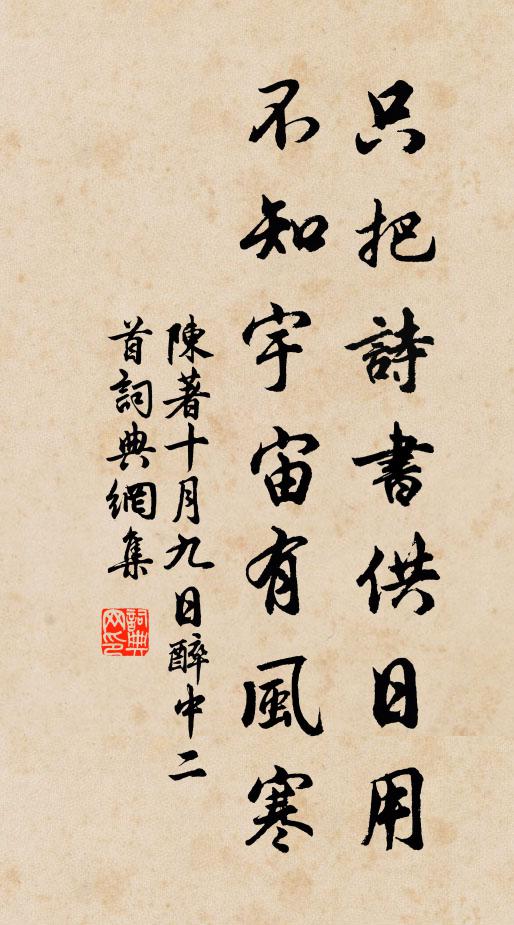 只把詩書供日用
不知宇宙有風寒
陳著十月九日醉中二
首詞典網集
詞典网印